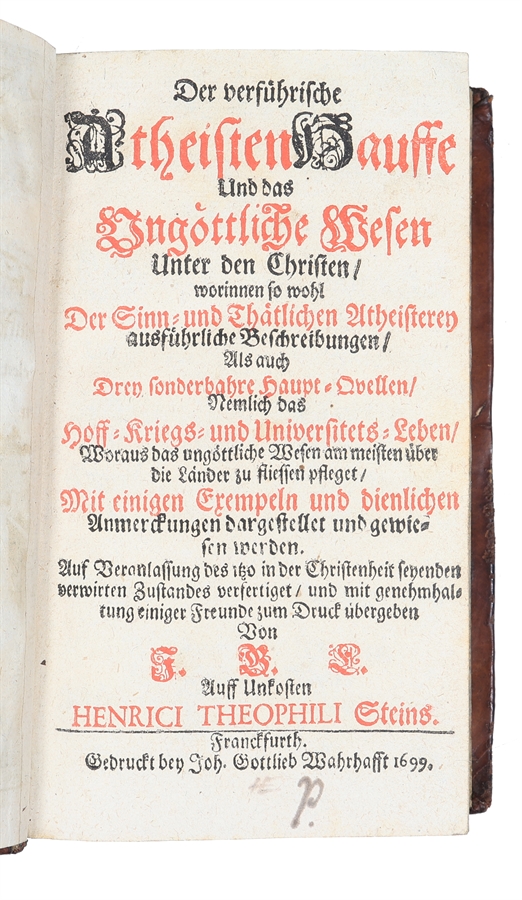 Der verführische
Atheisten Hauffe
Und das
Ungöttliche Wesen
Unter den Christen/
worinnen so wohl
Der Sinn- und Thätlichen Atheisterey
ausführliche Beschreibungen/
Als auch
Drey sonderbahre Haupt-Qvellen/
Nemlich das
Hoff-Kriegs- und Universitets-Leben/
Woraus das ungöttliche Wesen am meisten über
die Länder zu fliessen pfleget/
Mit einigen Exempeln und dienlichen
Anmerckungen dargestellet und gewie-
sen werden.
Auf Veranlassung des itzo in der Christenheit seyenden
verwirten Zustandes verfertiget/ und mit genehmhal-
tung einiger Freunde zum Druck übergeben
Von
Auff Unkosten
HENRICI THEOPHILI Steins.
Franckfurth.
Gedruckt bey Joh. Gottlieb Wahrhafft 1699.
p.